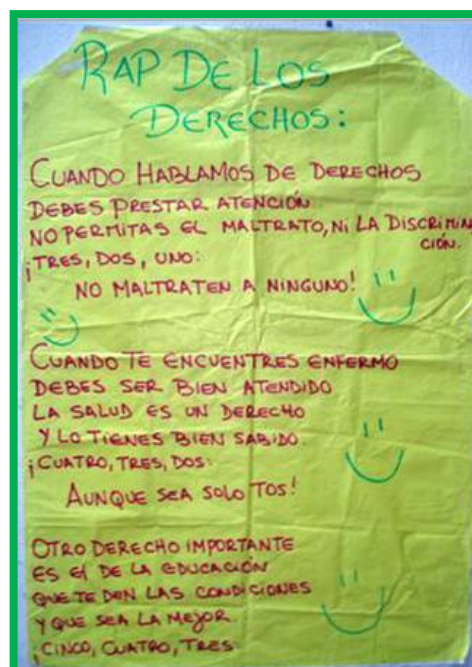 RAP DE LOS
DERECHOS:
CUANDO HABLAMOS DE DERECHOS
DEBES PRESTAR ATENCIÓN
NO PERMITAS EL MALTRATO, NI LA DISCRIMINA
CIÓN.
¡TRES, DOS, UNO:
NO MALTRATEN A NINGUNO!
CUANDO TE ENCUENTRES ENFERMO
DEBES SER BIEN ATENDIDO
LA SALUD ES UN DERECHO
Y LO TIENES BIEN SABIDO.
¡CUATRO, TRES, DOS:
AUNQUE SEA SOLO TOS!
OTRO DERECHO IMPORTANTE
ES El DE LA EDUCACIÓN
QUE TE DEN LAS CONDICIONES
Y QUE SEA LA MEJOR
¡CINCO, CUATRO, TRES